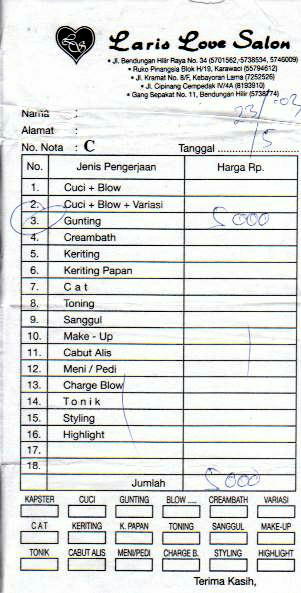 Laris Love Salon
• Jl. Bendungan Hilir Raya No. 34 (5701562,-5738534, 5746009)
• Ruko Pinangsia Blok H/19, Karawaci (55794612)
• Jl. Kramat No. 8/F, Kebayoran Lama (7252526)
• Jl. Cipinang Cempedak IV/4A (8193910)
• Gang Sepakat No. 11, Bendungan Hilir (5738774)
Nama :
Alamat :
No. Nota : C Tanggal 23/5-03
No. Jenis Pengerjaan Harga Rp.
1. Cuci + Blow
2. Cuci + Blow + Variasi
3. Gunting 5000
4. Creambath
5. Keriting
6. Keriting Papan
7. C a t
8. Toning
9. Sanggul
10. Make - Up
11. Cabut Alis
12. Meni / Pedi
13. Charge Blow
14. T o n i k
15. Styling
16. Highlight
17.
18.
Jumlah 5000
KAPSTER CUCI GUNTING BLOW ..... CREAMBATH VARIASI
C A T KERITING K. PAPAN TONING SANGGUL MAKE-UP
TONIK CABUT ALIS MENI/PEDI CHARGE B. STYLING HIGHLIGHT
Terima Kasih,